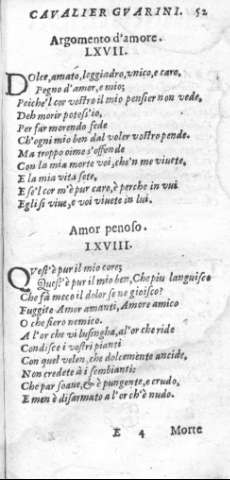 CAVALIER GVARINI. 52
Argomento d'amore.
LXVII.
Dolce, amato, leggiadro, vnico, e caro,
Pegno d'amor, e mio;
Poiche'l cor vostro il mio pensier non vede,
Deh morir potess'io,
Per far morendo fede
Ch'ogni mio ben dal voler vostro pende.
Ma troppo oime s'offende
Con la mia morte voi, che'n me viuete,
E la mia vita sete,
E se'l cor m'è pur caro, è perche in vui
Egli si viue, e voi viuete in lui.
Amor penoso.
LXVIII.
Quest'è pur il mio core;
Quest'è pur il mio ben, Che piu languisco
Che fà meco il dolor se ne gioisco?
Fuggite Amor amanti, Amore amico
O che fiero nemico.
A l'or che vi lusingha, al'or che ride
Condisce i vostri pianti
Con quel velen, che dolcemente ancide,
Non credete à i sembianti:
Che par soaue, & è pungente, e crudo,
E men è disarmato a l'or ch'è nudo.
E 4 Morte